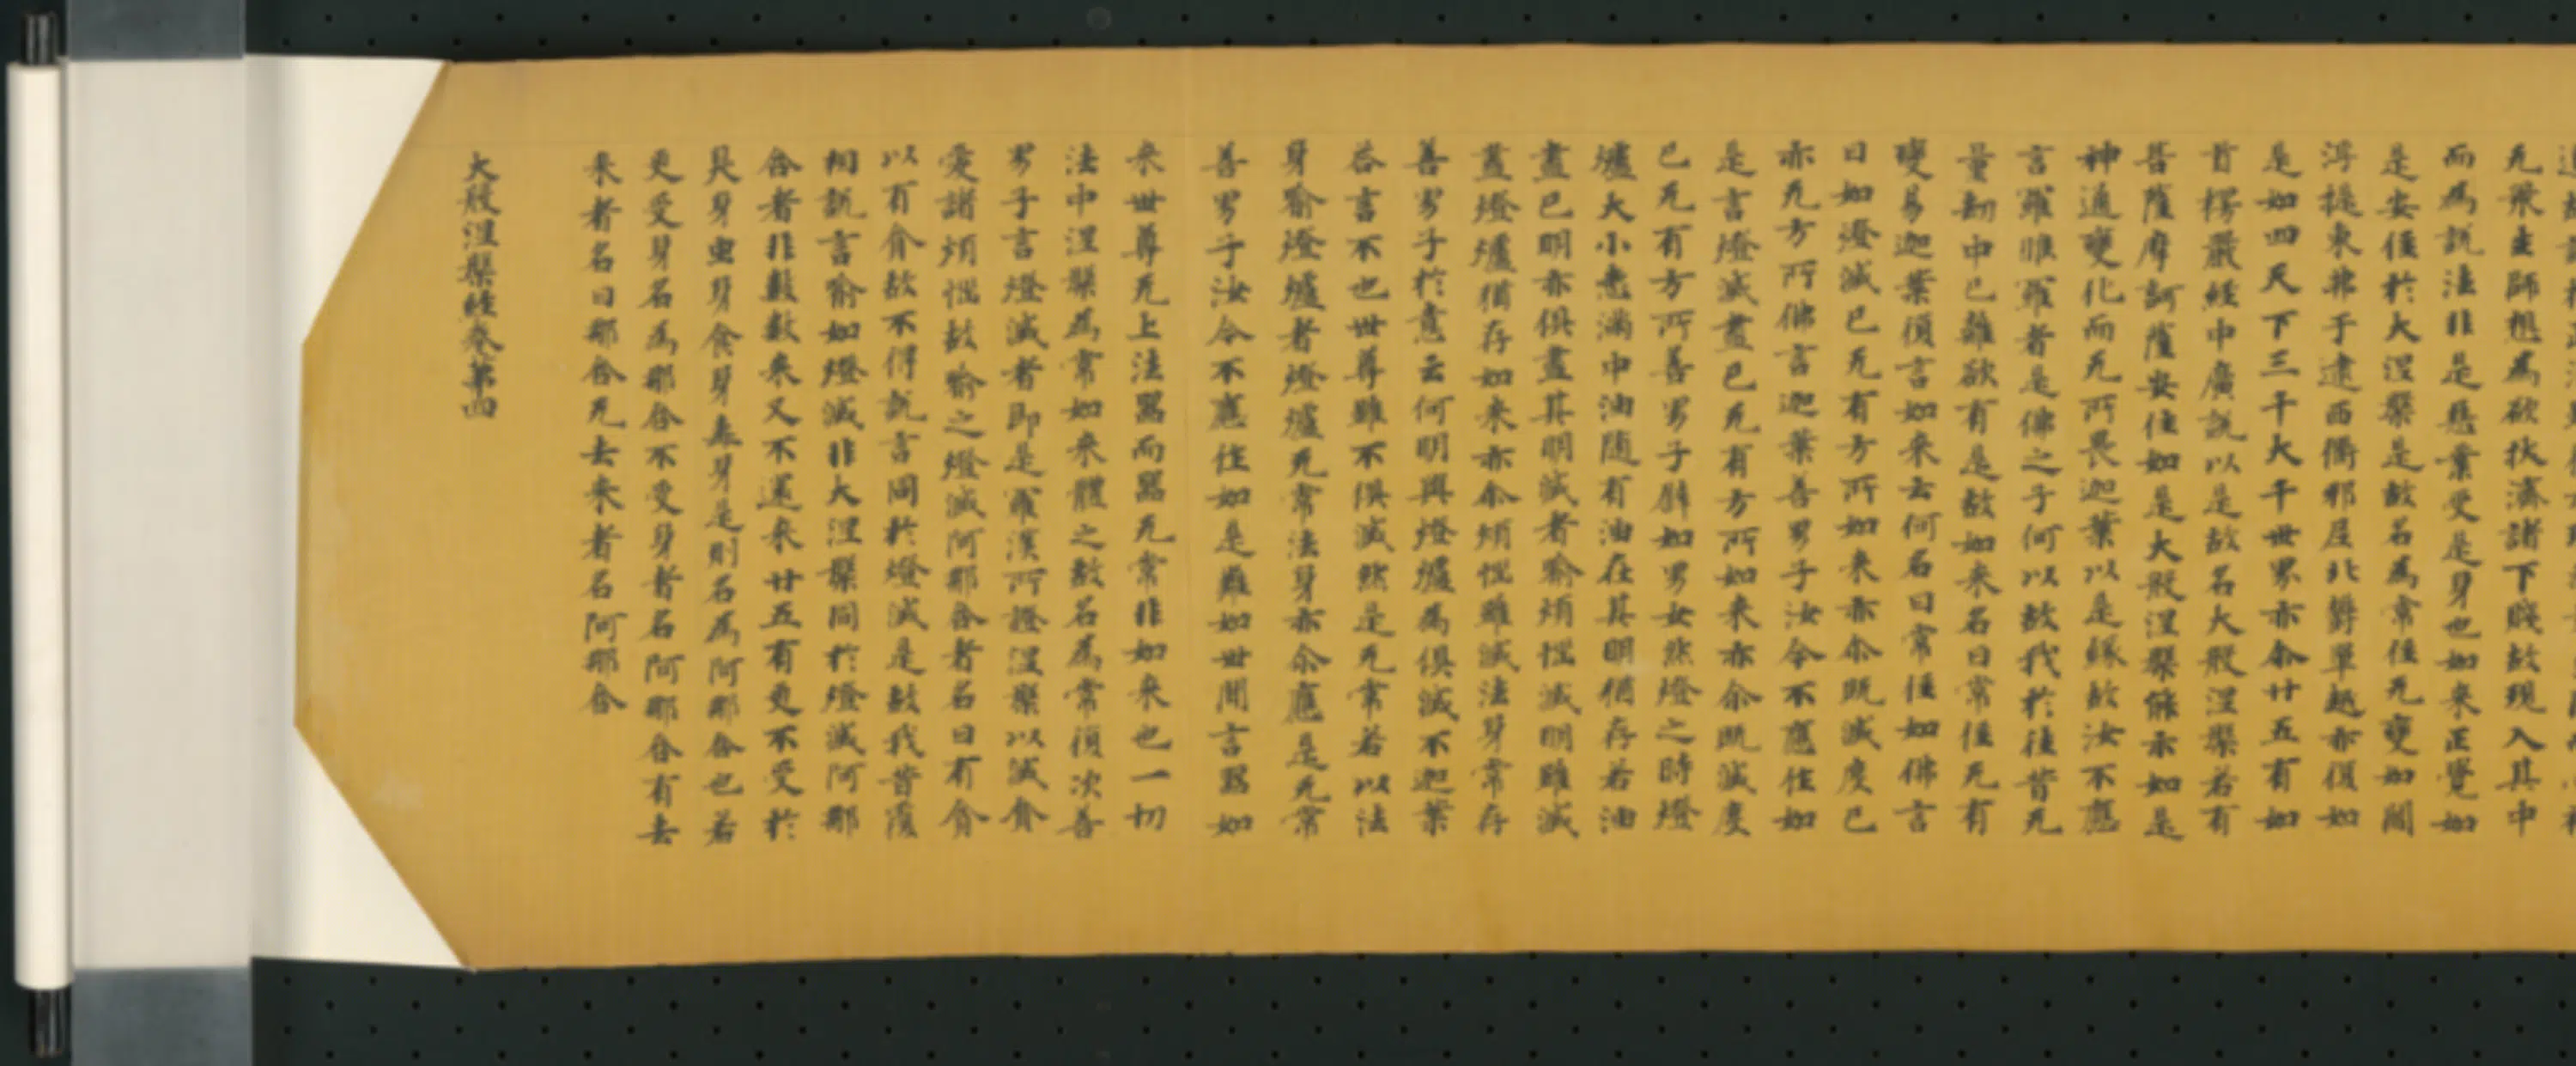 无飛走師想為欲扶濟諸下賤故現入其中
而為說法非是惡業受是身也如來正覺如
是安住於大涅槃是故名為常住无變如閻
浮提東弗于逮西衢邪尼北欝單越亦復如
是如四天下三千大千世界亦尒廿五有如
首楞嚴經中廣說以是故名大般涅槃若有
菩薩摩訶薩安住如是大般涅槃能示如是
神通變化而无所畏迦葉以是緣故汝不應
言羅睺羅者是佛之子何以故我於往昔无
量劫中已離欲有是故如來名曰常住无有
變易迦葉復言如來云何名曰常住如佛言
曰如燈滅已无有方所如來亦尒既滅度已
亦无方所佛言迦葉善男子汝今不應作如
是言燈滅盡已无有方所如來亦尒既滅度
已无有方所善男子辟如男女然燈之時燈
爐大小悉滿中油随有油在其明猶存若油
盡已明亦俱盡其明滅者喻煩惱滅明雖滅
盡燈爐猶存如來亦尒煩惱雖滅法身常存
善男子於意云何明與燈爐為俱滅不迦葉
荅言不也世尊雖不俱滅然是无常若以法
身喻燈爐者燈爐无常法身亦尒應是无常
善男子汝今不應作如是難如世間言器如
來世尊无上法器而器无常非如來也一切
法中涅槃為常如來體之故名為常復次善
男子言燈滅者即是羅漢所證涅槃以滅貪
愛諸煩惱故喻之燈滅阿那含者名曰有貪
以有貪故不得說言同於燈滅是故我昔覆
相說言喻如燈滅非大涅槃同於燈滅阿那
含者非數數來又不還來廿五有更不受於
臭身虫身食身毒身是則名為阿那含也若
更受身名為那含不受身者名阿那含有去
來者名曰那含无去來者名阿那含
大般涅槃經卷第四